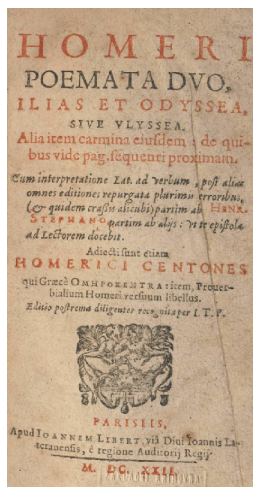 HOMERI
POEMATA DVO,
ILIAS ET ODYSSEA,
SIVE VLYSSEA.
Alia item carmina eiusdem: de qui-
bus vide pag. sequenti proximam.
Cum interpretatione Lat. ad verbum, post alias
omnes editiones repurgata plurimis erroribus,
(& quidem crassis alicubi) partim ab HENR.
STEPHANO, partim ab alijs: vt te epistola
ad Lectorem docebit.
Adiecti sunt etiam
HOMERICI CENTONES
qui Græcè ΟΜΗΡΟΚΕΝΤΡΑ: item, Prouer-
bialium Homeri versuum libellus.
Editio postrema diligenter recognita per I. T. P.
PARISIIS,
Apud IOANNEM LIBERT, viâ Diui Ioannis La-
teranensis, è regione Auditorij Regij.
M. DC. XXII.